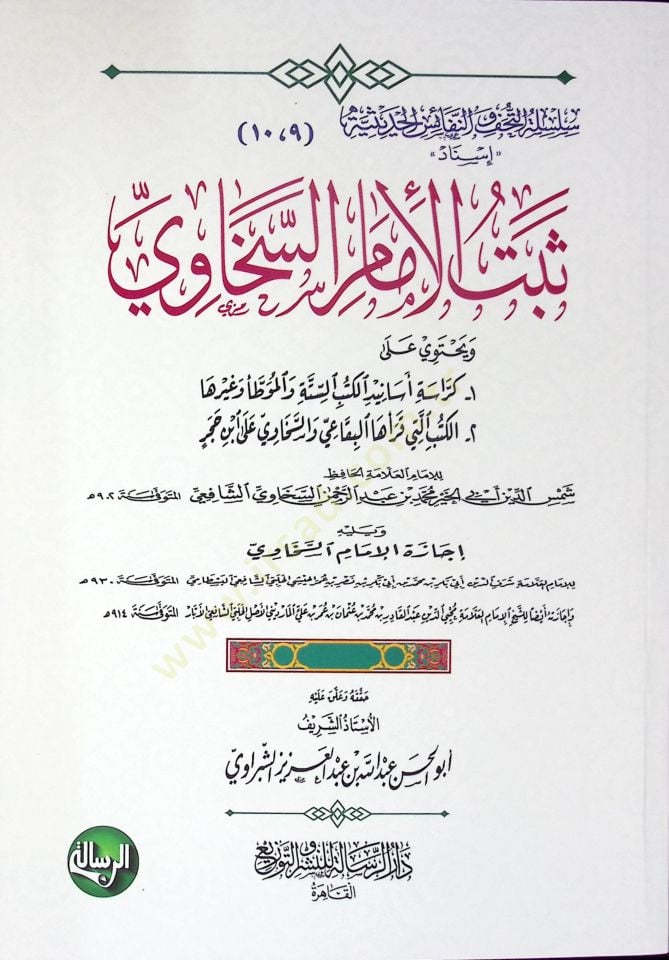 سلسلة التحف والنفائس الحديثية (٩، ١٠)
«إسناد»
ثَبَتُ الإِمَامِ السَّخَاوِيِّ
وَيَحْتَوِي عَلَى
١- كرَّاسَةِ أَسَانِيدِ الكُتُبِ السِّتَّةِ وَالمُوَطَّأ وَغَيْرِهَا
٢- الكُتُبِ الَّتِي قَرَأَهَا البِقَاعِي وَالسَّخَاوِيّ عَلَى ابْنِ حَجَرٍ
للإمام العلامة الحافظ
شمس الدين أبي الخير محمد بن عبد الرحمن السخاوي الشافعي المتوفى سنة ٩٠٢هـ
ويليه
إجازة الإمام السخاوي
للإمام العلامة شرف الدين أبي بكر بن محمد بن أبي بكر بن نصر بن عمر الحلبي الشافعي البسطامي المتوفى سنة ٩٣٠هـ
وإجازته أيضا للشيخ الإمام العلامة محيي الدين عبد القادر بن محمد بن عثمان بن عمر بن علي المارديني الأصل الحلبي الشافعي المتوفى سنة ٩١٤هـ
حَقَّقَهُ وَعَلَّقَ عَلَيْهِ
الأُسْتَاذُ الشَّرِيفُ
أبو الحسن عبد الله بن عبد العزيز الشبراوي
دار الرسالة للنشر والتوزيع
القاهرة
الرسالة
www.irsad.com.tr